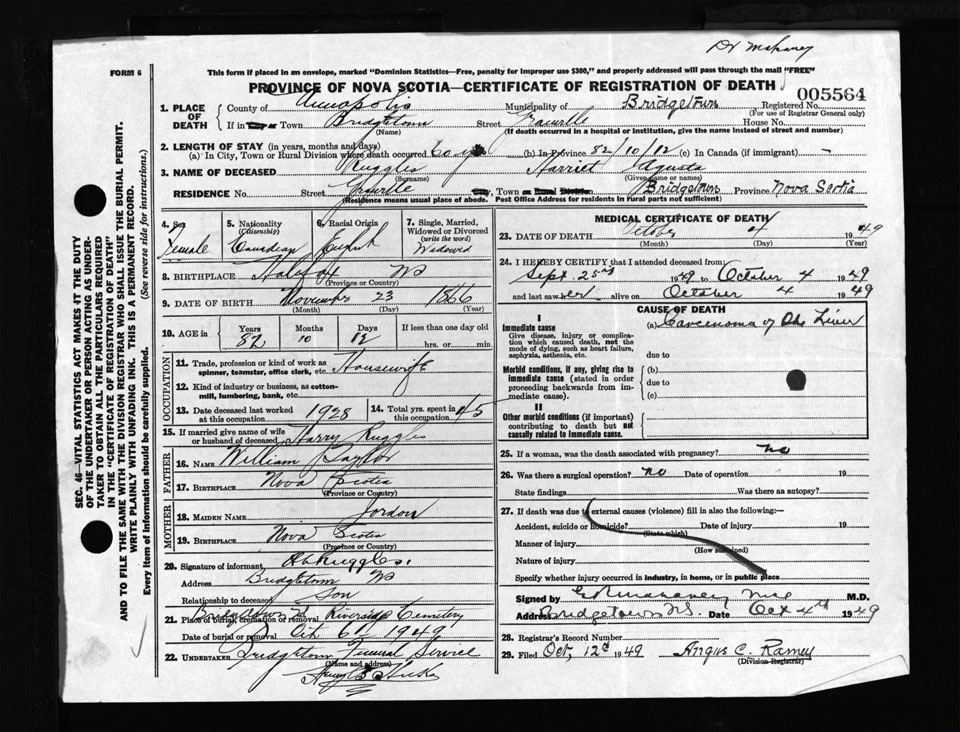 Dr Mahaney
FORM 6
This form if placed in an envelope, marked "Dominion Statistics—Free, penalty for improper use $300," and properly addressed will pass through the mail "FREE"
PROVINCE OF NOVA SCOTIA—CERTIFICATE OF REGISTRATION OF DEATH
005564
1. PLACE OF DEATH
County of Annapolis Municipality of Bridgetown Registered No.
(For use of Registrar General only)
If in Town Bridgetown Street Granville House No.
(Name) (If death occurred in a hospital or institution, give the name instead of street and number)
2. LENGTH OF STAY (in years, months and days)
(a) In City, Town or Rural Division where death occurred 60 (b) In Province 82/10/12 (c) In Canada (if immigrant) –
3. NAME OF DECEASED Ruggles Harriet Agusta
(Surname) (Given name or names)
RESIDENCE No. Street Granville City, Town or Rural Division Bridgetown Province Nova Scotia
(Residence means usual place of abode. Post Office Address for residents in rural parts not sufficient)
4. Sex Female
5. Nationality (Citizenship) Canadian
6. Racial Origin
7. Single, Married, Widowed or Divorced (write the word) Widowed
8. BIRTHPLACE Halifax NS
9. DATE OF BIRTH November 23 1866
(Month) (Day) (Year)
10. AGE in Years 82 Months 10 Days 12 If less than one day old
hrs. or min.
OCCUPATION
11. Trade, profession or kind of work as spinner, teamster, office clerk, etc. Housewife
12. Kind of industry or business, as cotton-mill, lumbering, bank, etc.
13. Date deceased last worked at this occupation 1928
14. Total yrs. spent in this occupation 45
15. If married give name of wife or husband of deceased Harry Ruggles
FATHER
16. NAME William Taylor
17. BIRTHPLACE Nova Scotia
(Province or Country)
MOTHER
18. MAIDEN NAME Jordon
19. BIRTHPLACE Nova Scotia
(Province or Country)
20. Signature of informant Ruggles.
Address Bridgetown NS
Relationship to deceased Son
21. Place of burial, cremation or removal Bridgetown NS Riverside Cemetery
Date of burial or removal Oct 6th 1949
22. UNDERTAKER Bridgetown Funeral Service
(Name and address)
Hicks
MEDICAL CERTIFICATE OF DEATH
23. DATE OF DEATH October 4 1949
(Month) (Day) (Year)
24. I HEREBY CERTIFY that I attended deceased from:
Sept. 25th 1949 to October 4 1949
and last saw her alive on October 4 1949
CAUSE OF DEATH
I
Immediate cause (a) Carcenoma of the Liver
Give disease, injury or complication which caused death, not the mode of dying, such as heart failure, asphyxia, asthenia, etc.
due to
Morbid conditions, if any, giving rise to immediate cause (stated in order proceeding backwards from immediate cause).
(b)
due to
(c)
II
Other morbid conditions (if important) contributing to death but not causally related to immediate cause.
25. If a woman, was the death associated with pregnancy? no
26. Was there a surgical operation? no Date of operation 19
State findings Was there an autopsy?
27. If death was due to external causes (violence) fill in also the following:—
Accident, suicide or homicide? Date of injury 19
(State which)
Manner of injury
(How sustained)
Nature of injury
Specify whether injury occurred in industry, in home, or in public place
Signed by Mahaney M.D.
Address Bridgetown NS. Date Oct 4th 1949
28. Registrar's Record Number
29. Filed Oct. 12th 1949 Angus C. Ramey
(Division Registrar)
SEC. 46—VITAL STATISTICS ACT MAKES IT THE DUTY
OF THE UNDERTAKER OR PERSON ACTING AS UNDERTAKER
TO OBTAIN ALL THE PARTICULARS REQUIRED
IN THE "CERTIFICATE OF REGISTRATION OF DEATH"
AND TO FILE THE SAME WITH THE DIVISION REGISTRAR WHO SHALL ISSUE THE BURIAL PERMIT.
WRITE PLAINLY WITH UNFADING INK. THIS IS A PERMANENT RECORD.
Every item of information should be carefully supplied. (See reverse side for instructions.)